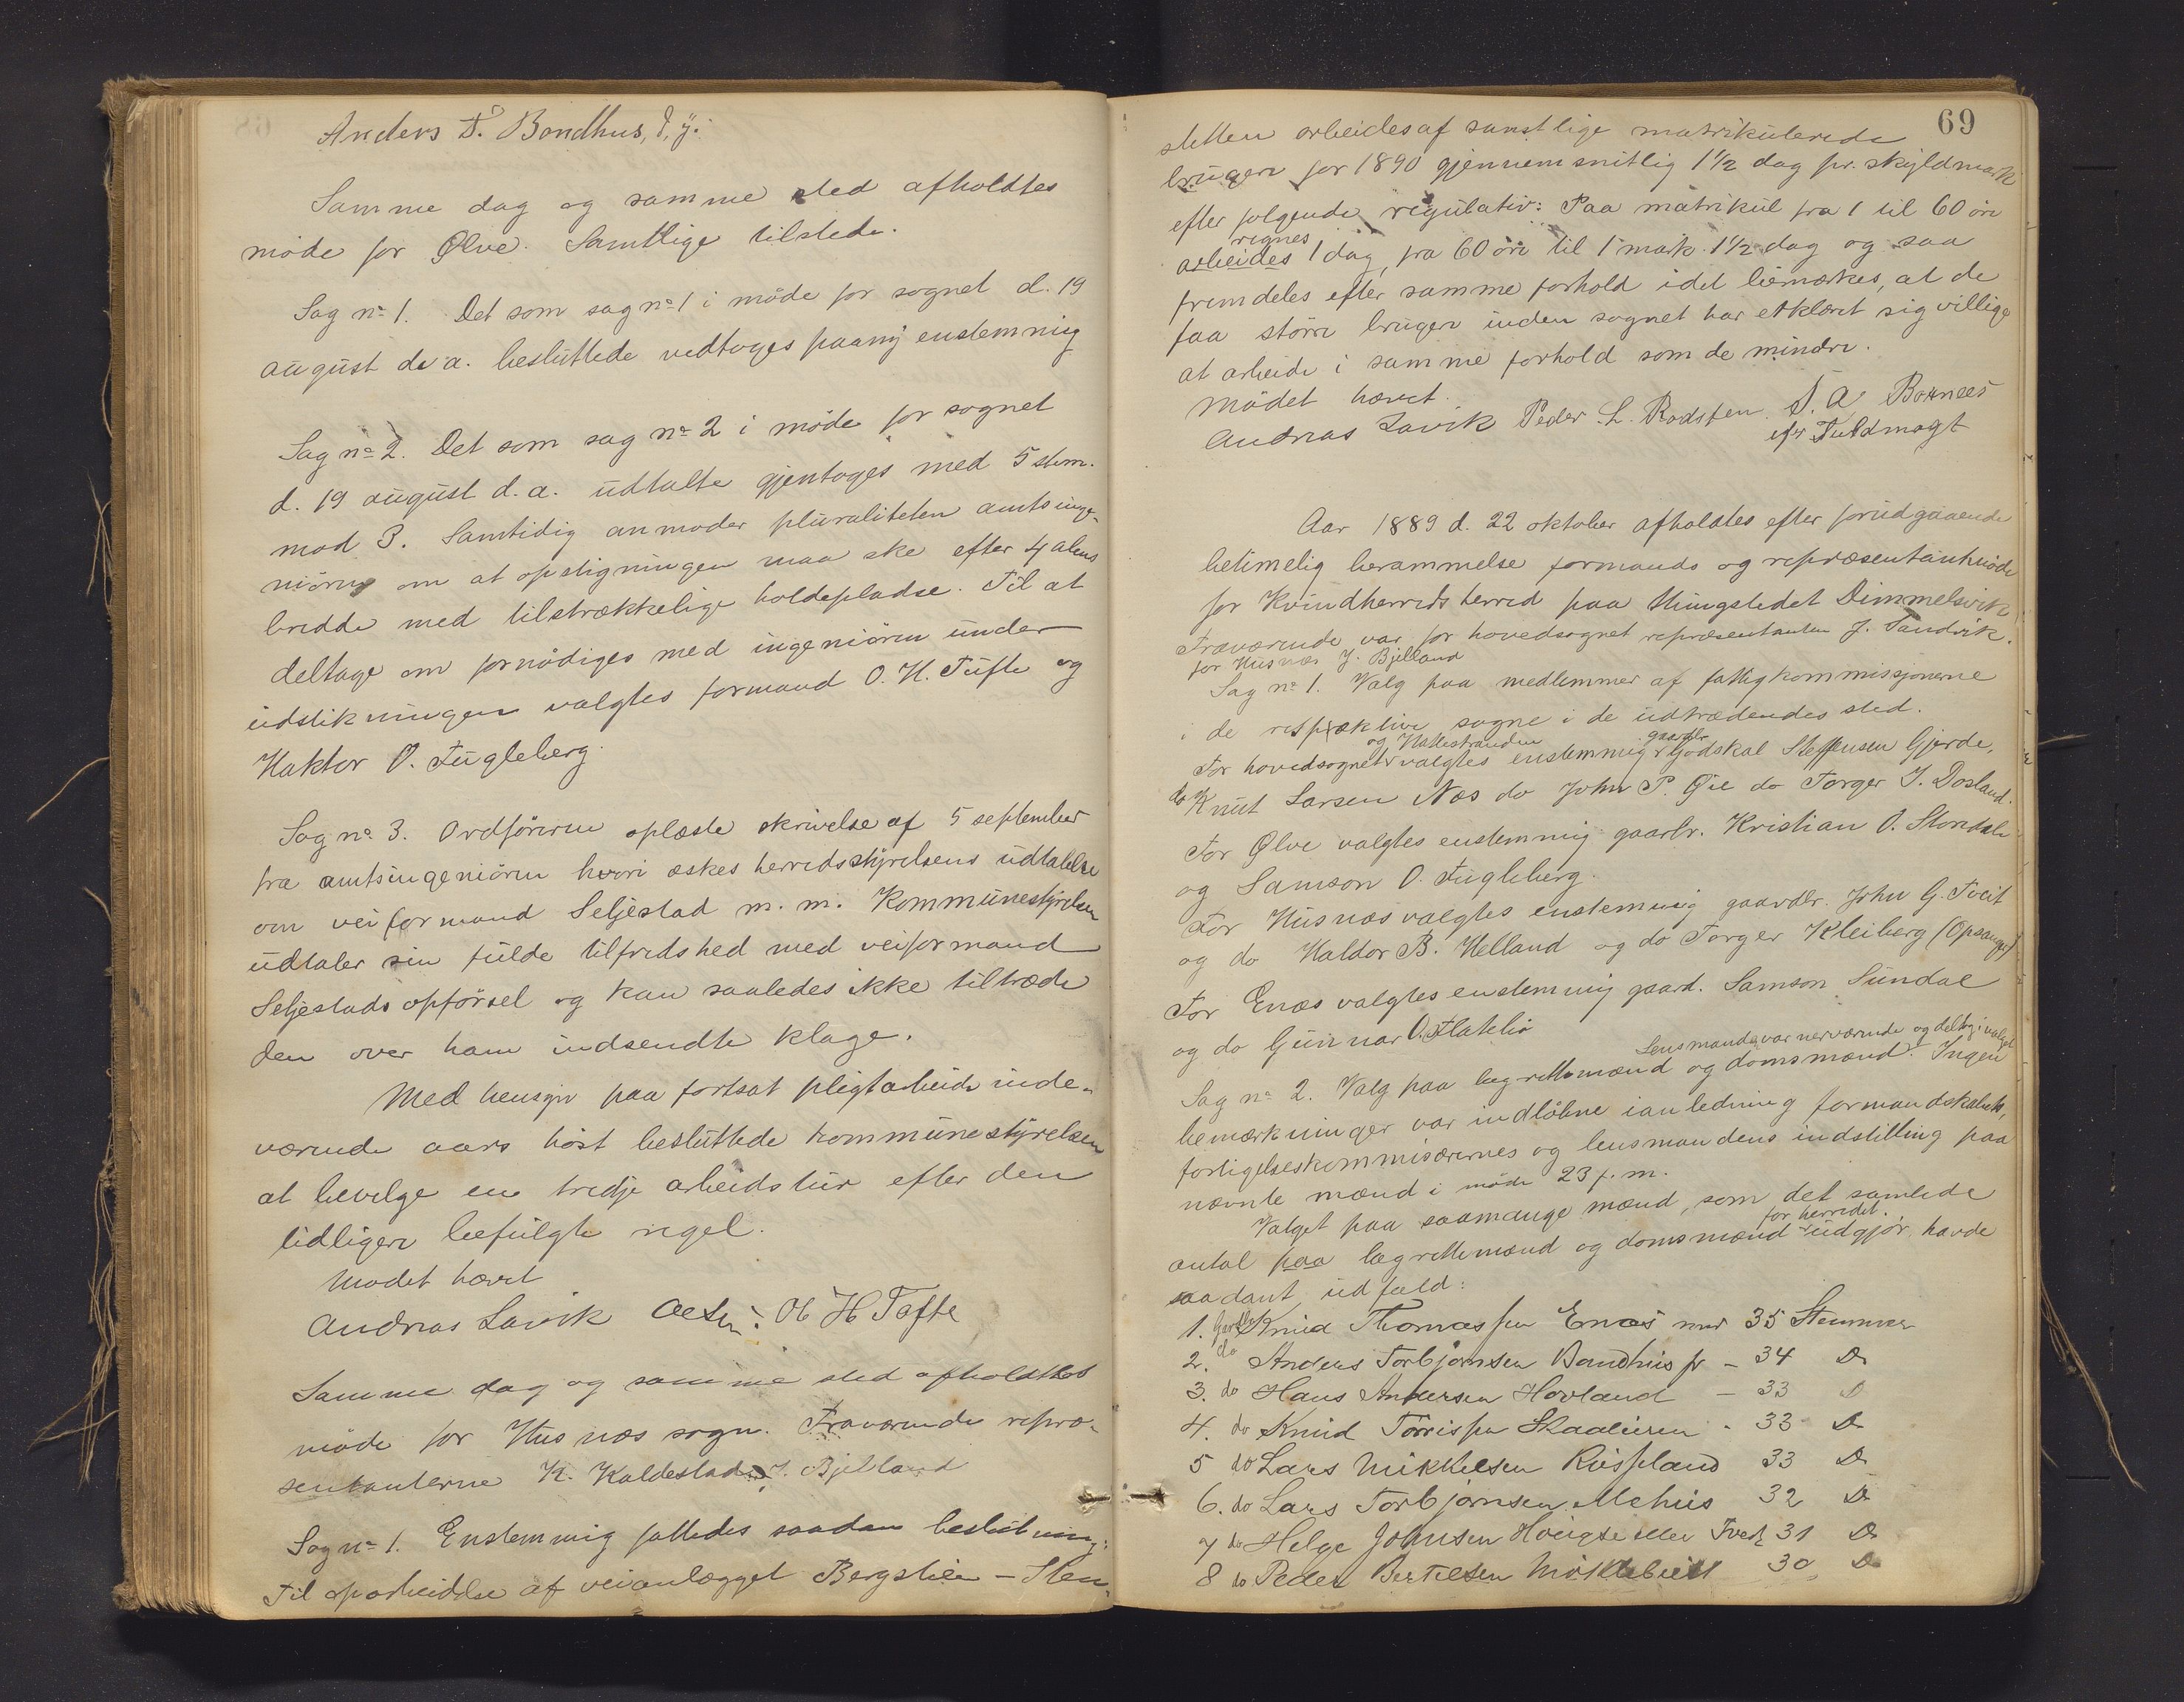 Anders T. Bondhus, d. y.
Samme dag og samme sted afholdtes
møde for Ølve. Samtlige tilstede.
Sag nº 1. Det som sag nº 1 i møde for sognet d. 19
august d. a. besluttede vedtoges paany enstemmig
Sag nº 2. Det som sag nº 2 i møde for sognet
d. 19 august d. a. udtalte gjentoges med 5 stem.
mod 3. Samtidig anmoder pluraliteten amtsinge-
niøren om at opstigningen maa ske efter 4 alens
bredde med tilstrækkelige holdepladse. Til at
deltage om fornødiges med ingeniøren under
udstikningen valgtes formand O. H. Tufte og
Haktor O. Fugleberg.
Sag nº 3. Ordføreren oplæste skrivelse af 5 september
fra amtsingeniøren hvori æskes herredsstyrelsens udtalelse
om veiformand Seljestad m. m. Kommunestyrelsen
udtaler sin fulde tilfredshed med veiformand
Seljestads opførsel og kan saaledes ikke tiltræde
den over ham indsendte klage.
Med hensyn paa fortsat pligtarbeide inde-
værende aars høst besluttede kommunestyrelsen
at bevilge en tredje arbeidstur efter den
tidligere befulgte regel.
Mødet hævet
Andreas Lavik Ol H Tofte
Samme dag og samme sted afholdtes
møde for Husnæs sogn. Fraværende repræ-
sentanterne K. Kaldestad, J. Bjelland
Sag nº 1. Enstemmig fattedes saadan beslutning:
Til oparbeidelse af veianlægget Bergstien – Sten-
69
sletten arbeides af samtlige matrikulerede
brugere for 1890 gjennemsnitlig 1 1/2 dag pr. skyldmark
efter følgende regulativ: Paa matrikul fra 1 til 60 øre
regnes
arbeides 1 dag, fra 60 øre til 1 mark 1 1/2 dag og saa
fremdeles efter samme forhold idet bemærkes, at de
faa større brugere inden sognet har erklæret sig villige
at arbeide i samme forhold som de mindre.
Mødet hævet.
Andreas Lavik Peder L. Rødsten. T. A Bornæs
efter Fuldmagt
Aar 1889 d. 22 oktober afholdtes efter forudgaaende
betimelig berammelse formands og repræsentantmøde
for Kvindherreds herred paa thingstedet Dimmelsvik
Fraværende var for hovedsognet repræsentanten J. Sandvik.
for Husnæs J. Bjelland
Sag nº 1. Valg paa medlemmer af fattigkommissjonerne
i de respæktive sogne i de udtrædendes sted.
og Hattestranden gaardbr
For hovedsognet valgtes enstemmig Godskal Steffensen Gjerde,
do Knut Larsen Næs do John P. Øie do Torger J. Dosland.
For Ølve valgtes enstemmig gaarbr. Kristian O. Stondal
og Samson O. Fugleberg.
For Husnæs valgtes enstemmig gaardbr. John G. Tveit
og do Haldor B. Helland og do Torger Kleiberg (Opsanger)
For Enæs valgtes enstemmig gaard. Samson Sundal
og do Gunnar O. Flatebø
Lensmanden var nerværende og deltog i valget
Sag nº 2. Valg paa lagrettemænd og domsmænd. Ingen
bemærkninger var indløbne ianledning formandskabets,
forligelseskommisærernes og lensmandens indstilling paa
nævnte mænd i møde 23 f. m.
Valget paa saamange mænd, som det samlede
for herredet
antal paa lagrettemænd og domsmænd udgjør, havde
saadant udfald:
1. Gardbr Knud Thomassen Enæs med 35 Stemmer
2. do Anders Torbjørnsen Bondhus jr – 34 Do
3. do Hans Andersen Hovland – 33 D
4. do Knud Tørrissen Skaaluren - 33 Do
5 do Lars Mikkelsen Røssland 33 Do
6. do Lars Torbjørnsen Mehus 32 Do
7 do Helge Johnsen eller Tvedt 31 Do
8 do Peder Bertelsen Møklebust 30 Do